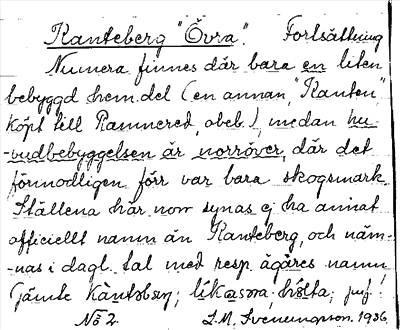 Ranteberg "Övra". Fortsättning
Numera finnes där bara en liten
bebyggd hem.del (en annan, "Ranten"
köpt till Ramnered, obeb.), medan hu-
-vudbebyggelsen är norröver, där det
förmodligen förr var bara skogsmark.
Ställena här norr synas ej ha annat
officiellt namn än Ranteberg, och näm-
-nas i dagl. tal med resp. ägares namn
jämte
No 2 S.M. Svenungson. 1936